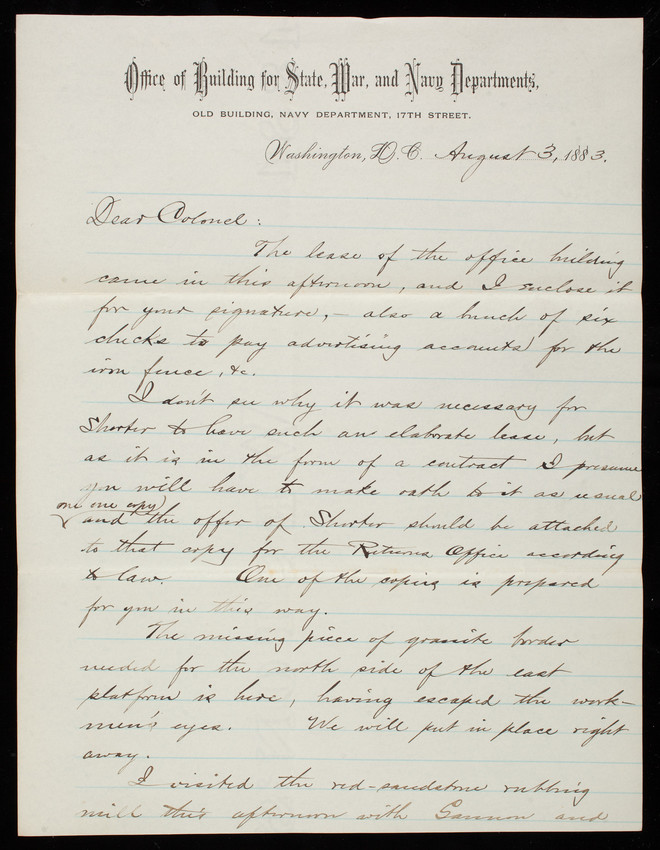 Office of Building for State, War, and Navy Departments,
OLD BUILDING, NAVY DEPARTMENT, 17TH STREET.
Washington, D. C. August 3, 1883.
Dear Colonel:
The lease of the office building
came in this afternoon, and I enclose it
for your signature, – also a bunch of six
checks to pay advertising accounts for the
iron fence, &c.
I don't see why it was necessary for
Shorter to have such an elaborate lease, but
as it is in the form of a contract I presume
you will have to make oath to it as usual
on one copy
and the offer of Shorter should be attached
to that copy for the Returns Office according
to law. One of the copies is prepared
for you in this way.
The missing piece of granite border
needed for the north side of the east
platform is here, having escaped the work-
men's eyes. We will put in place right
away.
I visited the red-sandstone rubbing
mill this afternoon with Gannon and